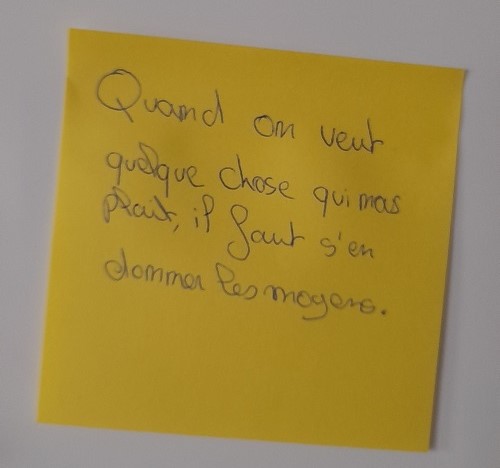 Quand on veut
quelque chose qui nous
plait, il faut s'en
donner les moyens.